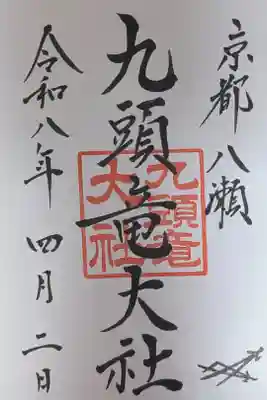 京都八瀬
九頭竜大社
九頭竜
大社
令和八年 四月二日